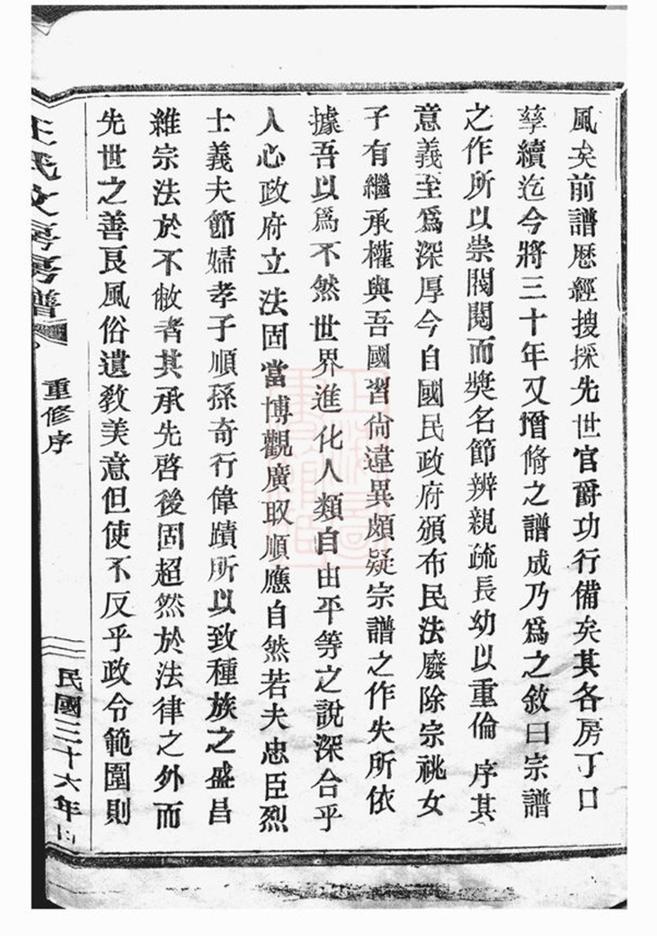 風矣前譜歷經搜採先世官爵功行備矣其各房丁口
孳續迄今將三十年又增脩之譜成乃爲之敘曰宗譜
之作所以崇閥閱而奬名節辨親疏長幼以重倫序其
意義至爲深厚今自國民政府頒布民法廢除宗祧女
子有繼承權與吾國習尙違異頗疑宗譜之作失所依
據吾以爲不然世界進化人類自由平等之說深合乎
人心政府立法固當博觀廣取順應自然若夫忠臣烈
士義夫節婦孝子順孫奇行偉蹟所以致種族之盛昌
維宗法於不敝者其承先啓後固超然於法律之外而
先世之善良風俗遺敎美意但使不反乎政令範圍則
王氏文房房譜
重修序
民國三十六年